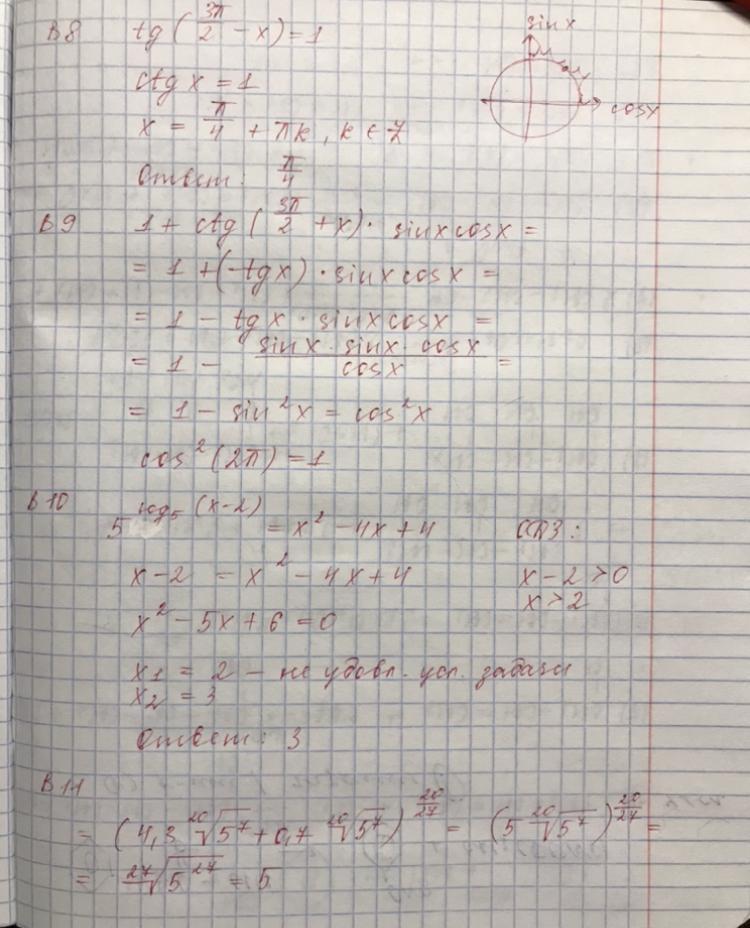 B8 tg(3π/2 - x) = 1
sin x
ctg x = 1
cos x
x = π/4 + πk, k ∈ Z
Ответ: π/4
B9 1 + ctg(3π/2 + x) · sin x cos x =
= 1 + (-tg x) · sin x cos x =
= 1 - tg x · sin x cos x =
= 1 - (sin x · sin x · cos x)/cos x =
= 1 - sin²x = cos²x
cos²(2π) = 1
B10 5^(log₅(x-2)) = x² - 4x + 4 ОДЗ:
x - 2 = x² - 4x + 4 x - 2 > 0
x² - 5x + 6 = 0 x > 2
x₁ = 2 - не удовл. усл. задачи
x₂ = 3
Ответ: 3
B11
= (4,3 ²⁰√5⁷ + 0,7 ²⁰√5⁷)^(20/27) = (5 ²⁰√5⁷)^(20/27) =
= ²⁷√5²⁷ = 5